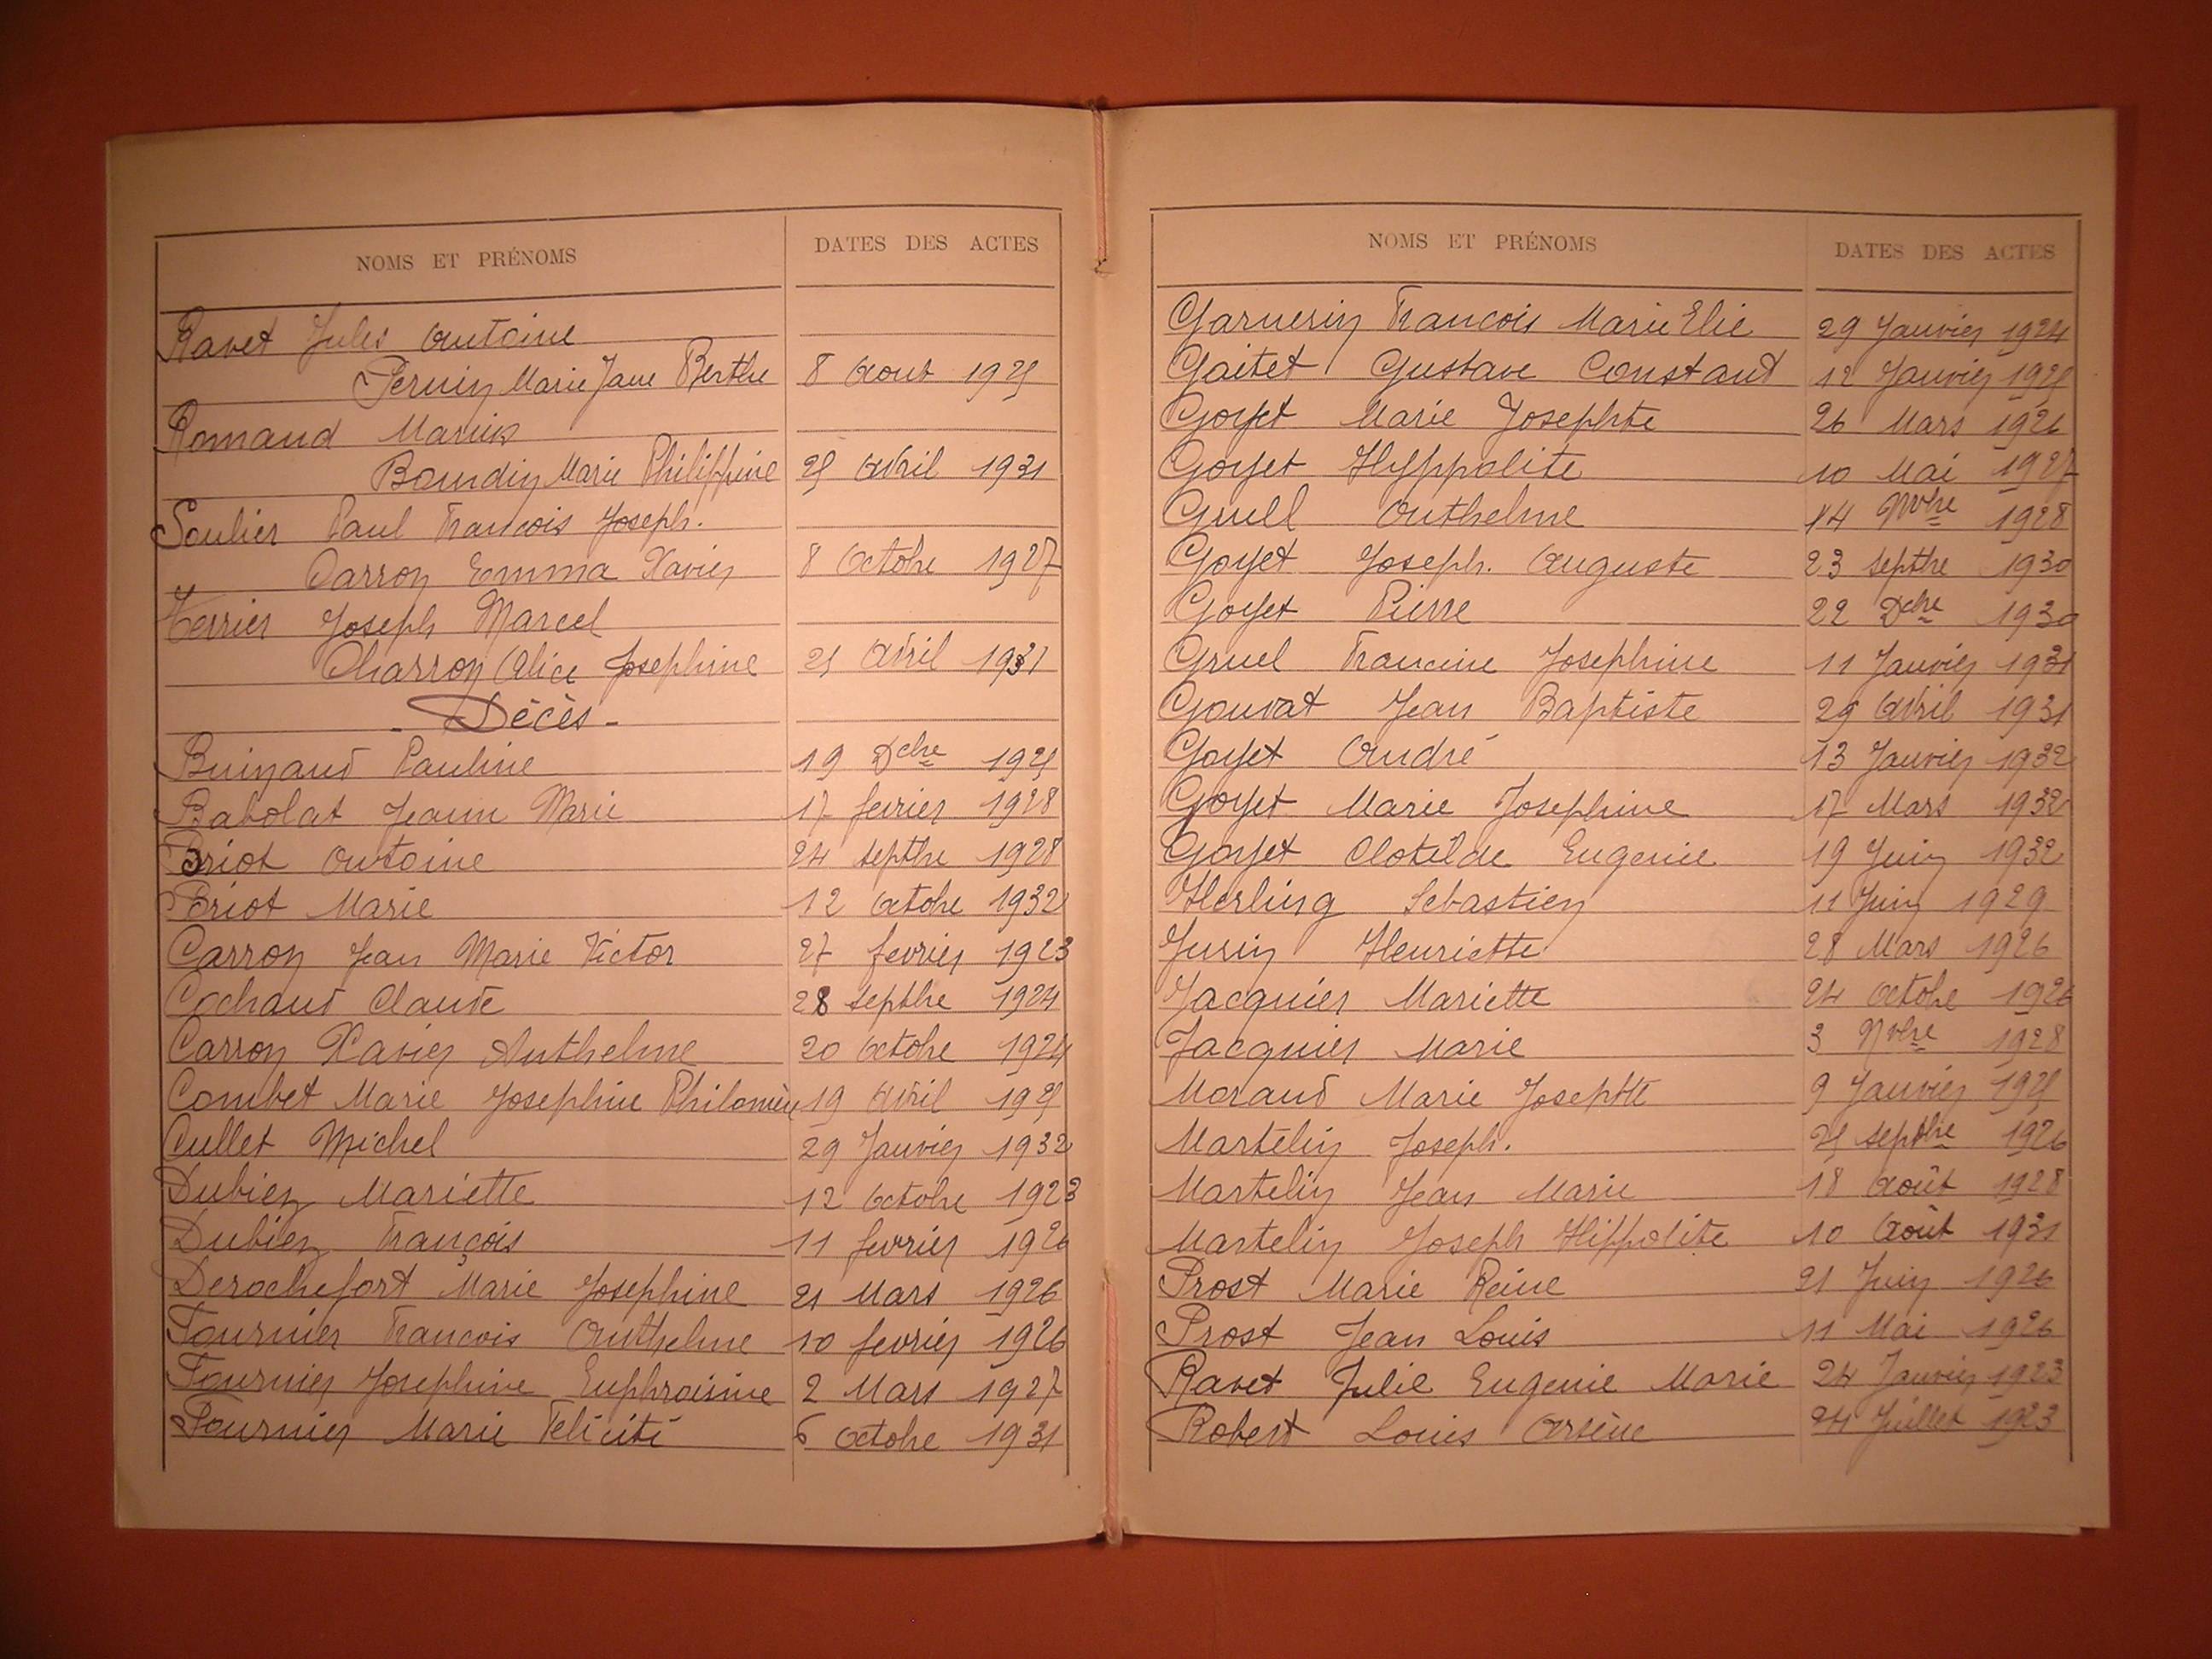 NOMS ET PRÉNOMS DATES DES ACTES
Ravet Jules Antoine
Pernin Marie Jane Berthe 8 Aout 1925
Romand Marius
Bourdin Marie Philippine 25 Avril 1931
Soulier Paul Francois Joseph.
Carron Emma Xavier 8 Octobre 1927
Terrier Joseph Marcel
Charron Alice Josephine 21 Avril 1931
- Décès -
Buinaud Pauline 19 Dcbre 1925
Babolat Jeann Marie 17 fevrier 1928
Briot Antoine 24 septbre 1928
Briot Marie 12 Octobre 1932
Carron Jean Marie Victor 27 fevrier 1923
Cochaud Claude 28 septbre 1924
Carron Xavier Anthelme 20 Octobre 1924
Combet Marie Josephine Philomène 19 Avril 1925
Cullet Michel 29 Janvier 1932
Dubien Mariette 12 Octobre 1923
Dubien François 11 fevrier 1926
Derochefort Marie Josephine 21 Mars 1926
Fournier Francois Anthelme 10 fevrier 1926
Fournier Josephine Euphroisine 2 Mars 1927
Fournier Marie Félicité 6 Octobre 1931
NOMS ET PRÉNOMS DATES DES ACTES
Garnerin Francois Marie Elie 29 Janvier 1924
Gaitet Gustave Constant 12 Janvier 1925
Goyet Marie Josephte 26 Mars 1926
Goyet Hyppolite 10 Mai 1927
Gruel Anthelme 14 Nvbre 1928
Goyet Joseph. Auguste 23 septbre 1930
Goyet Pierre 22 Dcbre 1930
Gruel Francine Josephine 11 Janvier 1931
Gouvat Jean Baptiste 29 Avril 1931
Goyet André 13 Janvier 1932
Goyet Marie Josephine 17 Mars 1932
Goyet Clotilde Eugenie 19 Juin 1932
Herling Sebastien 11 Juin 1929
Jusin Henriette 28 Mars 1926
Jacquier Mariette 24 Octobre 1926
Jacquier Marie 3 Nvbre 1928
Moraud Marie Josephte 9 Janvier 1925
Martelin Joseph. 25 septbre 1926
Martelin Jean Marie 18 Août 1928
Martelin Joseph Hippolite 10 Août 1931
Prost Marie Reine 21 Juin 1926
Prost Jean Louis 11 Mai 1926
Ravet Julie Eugenie Marie 24 Janvier 1923
Robert Louis Arsène 24 Juillet 1923